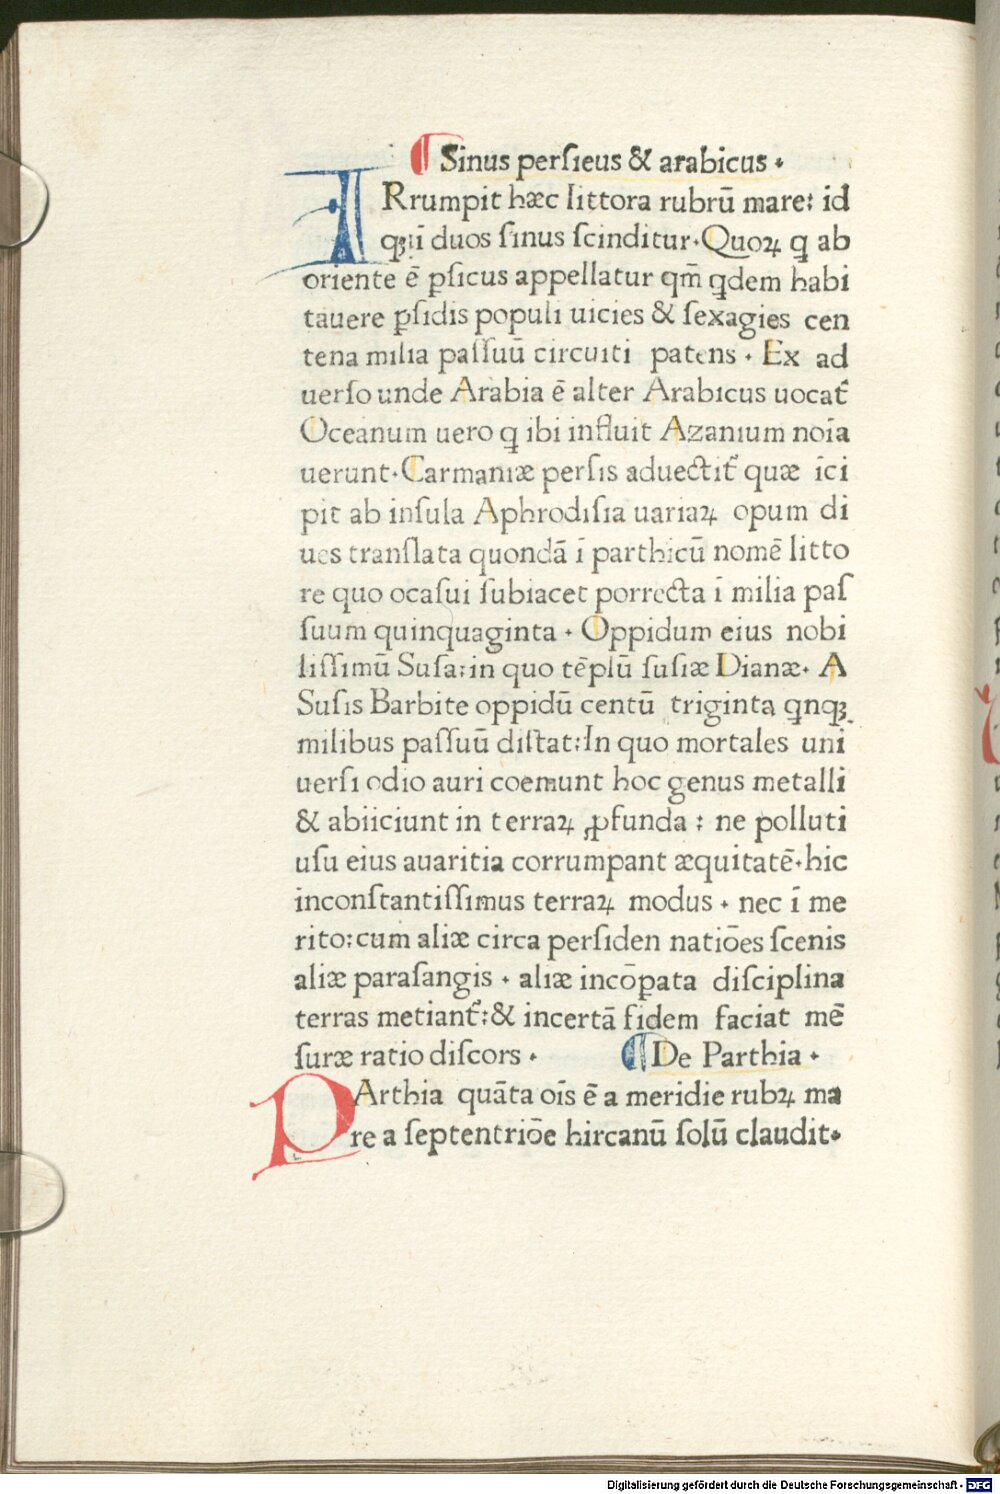 ¶ Sinus persieus & arabicus ·
ARrumpit hæc littora rubrū mare: id
qꝫ iī duos sinus scinditur· Quoꝝ ꝗ ab
oriente ē ꝑsicus appellatur qm̄ ꝗdem habi
tauere ꝑsidis populi uicies & sexagies cen
tena milia passuū circuiti patens · Ex ad
uerso unde Arabia ē alter Arabicus uocat᷑
Oceanum uero ꝗ ibi influit Azanium noīa
uerunt· Carmaniæ persis aduectit᷑ quæ īci
pit ab insula Aphrodisia uariaꝝ opum di
ues translata quondā ī parthicū nomē litto
re quo ocasui subiacet porrecta ī milia pas
suum quinquaginta · Oppidum eius nobi
lissimū Susa: in quo tēplū susiæ Dianæ· A
Susis Barbite oppidū centū triginta ꝗnqꝫ
milibus passuū distat: In quo mortales uni
uersi odio auri coemunt hoc genus metalli
& abiiciunt in terraꝝ ꝓfunda : ne polluti
usu eius auaritia corrumpant æquitatē· hic
inconstantissimus terraꝝ modus · nec ī me
rito: cum aliæ circa persiden natiōes scenis
aliæ parasangis · aliæ incōꝑata disciplina
terras metiant᷑: & incertā fidem faciat mē
suræ ratio discors · ¶ De Parthia ·
PArthia quāta oīs ē a meridie rubꝝ ma
re a septentriōe hircanū solū claudit·
Digitalisierung gefördert durch die Deutsche Forschungsgemeinschaft - DFG